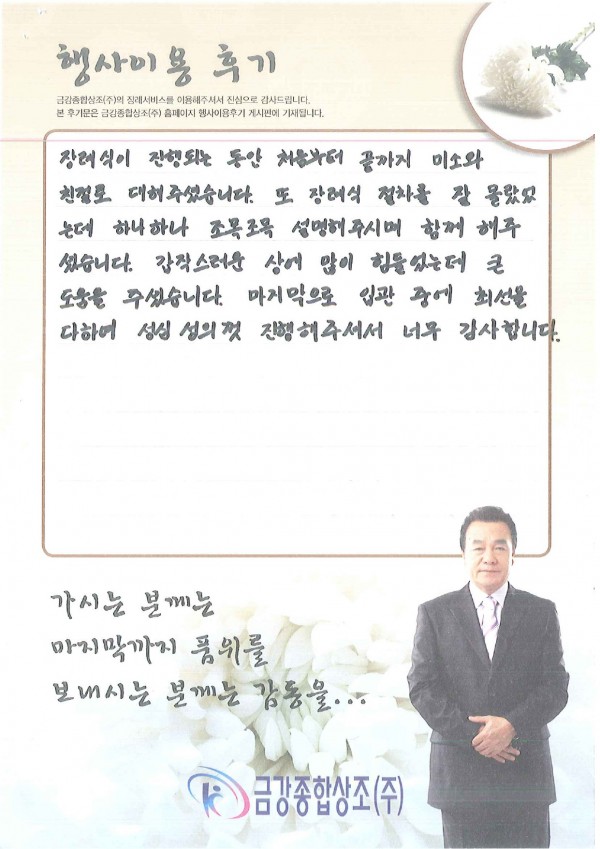 행사이용 후기
금강종합상조(주)의 장례서비스를 이용해주셔서 진심으로 감사드립니다.
본 후기문은 금강종합상조(주) 홈페이지 행사이용후기 게시판에 기재됩니다.
장례식이 진행되는 동안 처음부터 끝까지 미소와
친절로 대해주셨습니다. 또 장례식 절차를 잘 몰랐었
는데 하나하나 조목조목 설명해주시며 함께 해주
셨습니다. 갑작스러운 상에 맘이 힘들었는데 큰
도움을 주셨습니다. 마지막으로 입관 중에 최선을
다하여 성심 성의껏 진행해주셔서 너무 감사합니다.
가시는 분께는
마지막까지 품위를
보내시는 분께는 감동을...
금강종합상조(주)